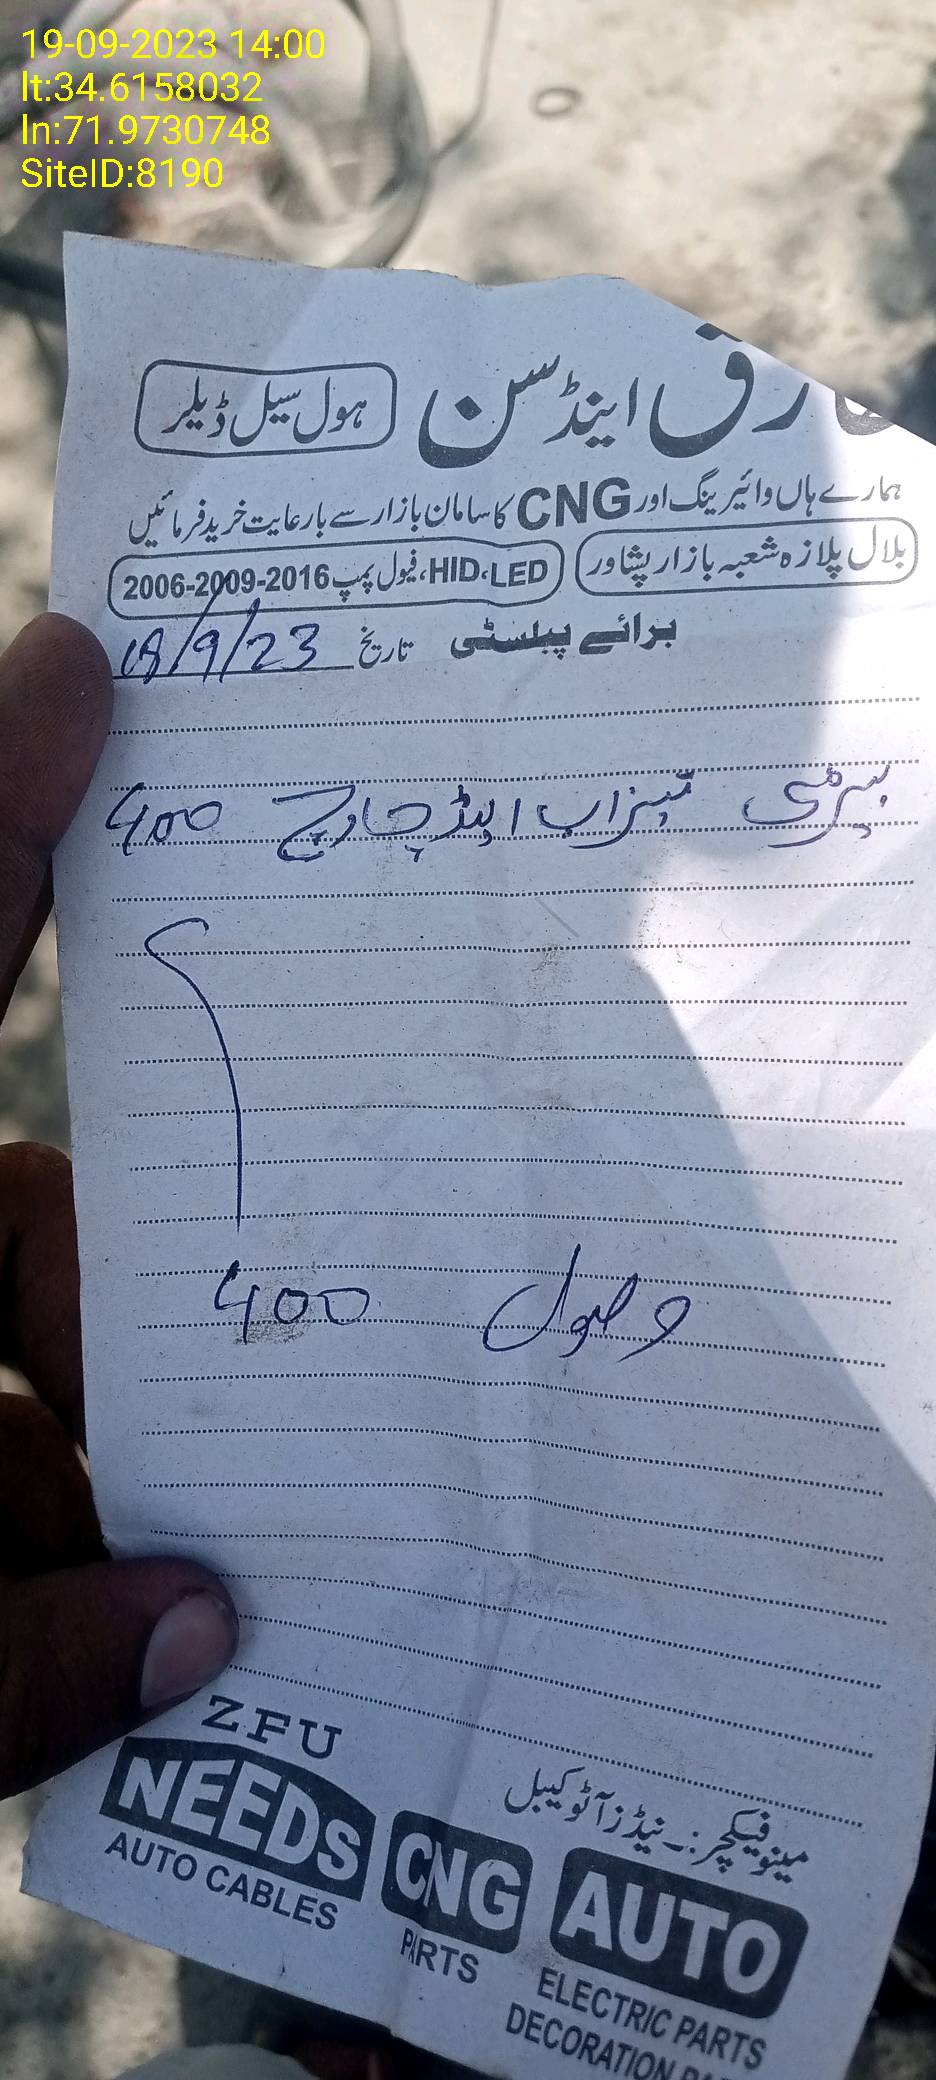 19-09-2023 14:00
lt:34.6158032
ln:71.9730748
SiteID:8190
رق اینڈ سن
ہول سیل ڈیلر
ہمارے ہاں وائیرینگ اور CNG کا سامان بازار سے بارعایت خرید فرمائیں
بلال پلازہ شعبہ بازار پشاور
HID،LED، فیول پمپ 2006-2009-2016
برائے پبلسٹی
تاریخ 18/9/23
بیٹری تیزاب اینڈ چارج 400
وصول 400
مینوفیکچر:۔ نیڈز آٹو کیبل
ZFU
NEEDS
AUTO CABLES
CNG
PARTS
AUTO
ELECTRIC PARTS
DECORATION PA